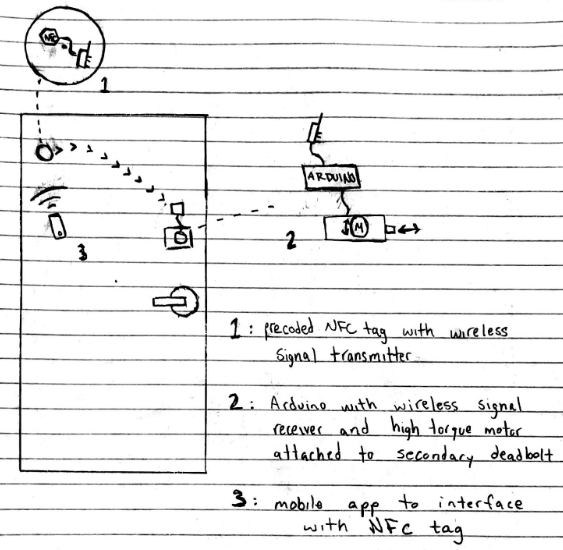 NFC
1
3
ARDUINO
M
2
1: precoded NFC tag with wireless
signal transmitter
2: Arduino with wireless signal
receiver and high torque motor
attached to secondary deadbolt
3: mobile app to interface
with NFC tag